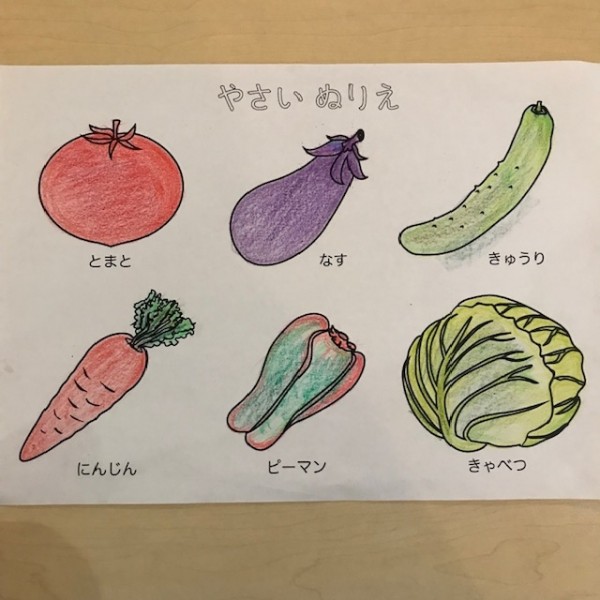 やさい ぬりえ
とまと
なす
きゅうり
にんじん
ピーマン
きゃべつ